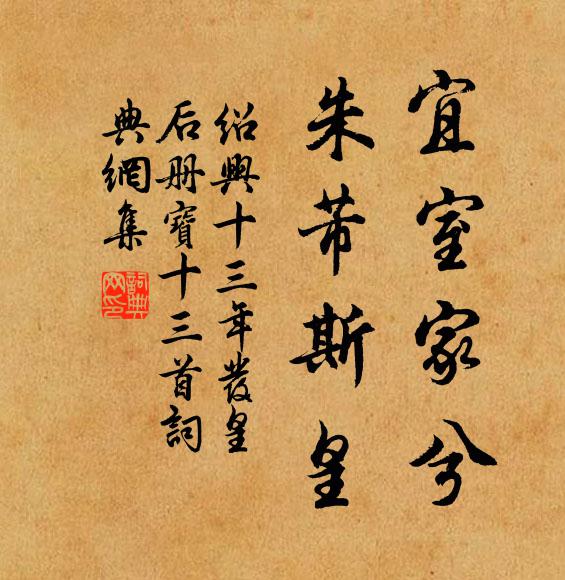 宜室家兮
朱芾斯皇
紹興十三年發皇
后册寶十三首詞
典網集
詞典網印